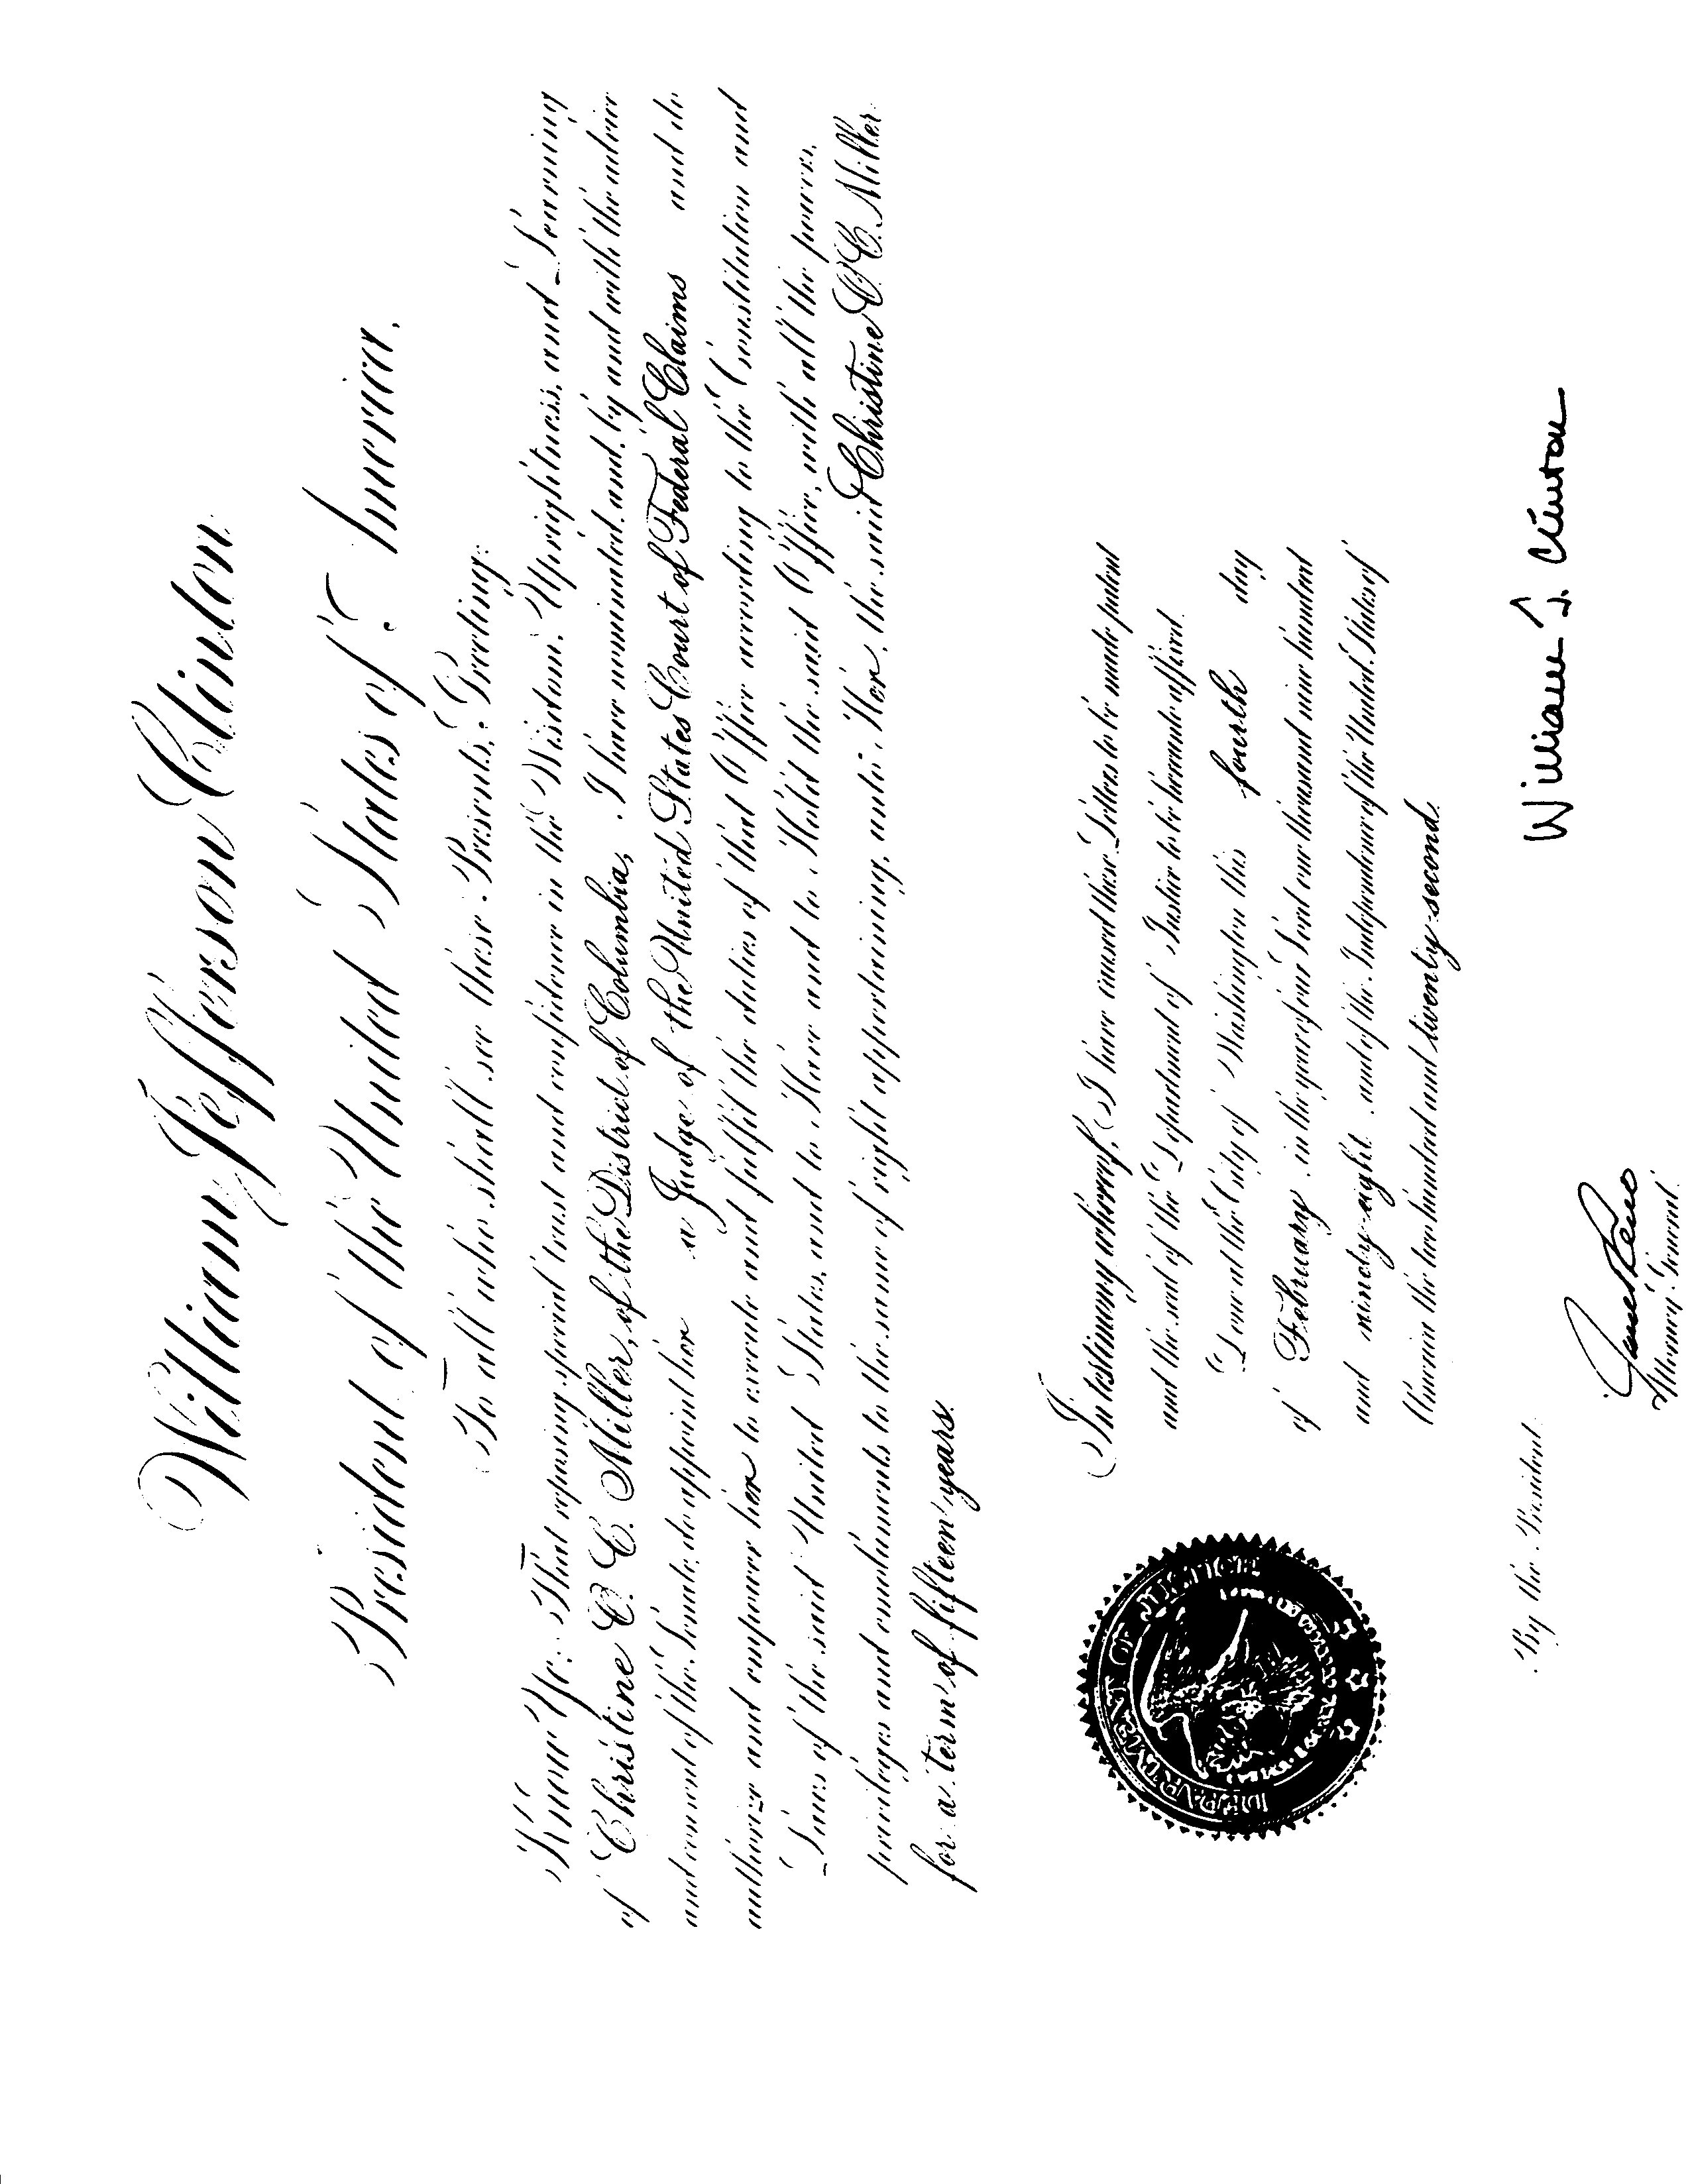 William Jefferson Clinton
President of the United States of America.
To all who shall see these Presents, Greeting:
Know Ye; That reposing special trust and confidence in the Wisdom, Uprightness, and Learning
of Christine O. C. Miller, of the District of Columbia, I have nominated, and, by and with the advice
and consent of the Senate, do appoint her a Judge of the United States Court of Federal Claims and do
authorize and empower her to execute and fulfil the duties of that Office according to the Constitution and
Laws of the said United States, and to Have and to Hold the said Office, with all the powers,
privileges and emoluments to the same of right appertaining, unto Her, the said Christine O. C. Miller
for a term of fifteen years.
In testimony whereof, I have caused these Letters to be made patent
and the seal of the Department of Justice to be hereunto affixed.
Done at the City of Washington this fourth day
of February in the year of our Lord one thousand nine hundred
and ninety-eight and of the Independence of the United States of
America the two hundred and twenty-second.
William J. Clinton
By the President:
Janet Reno
Attorney General.
DEPARTMENT OF JUSTICE